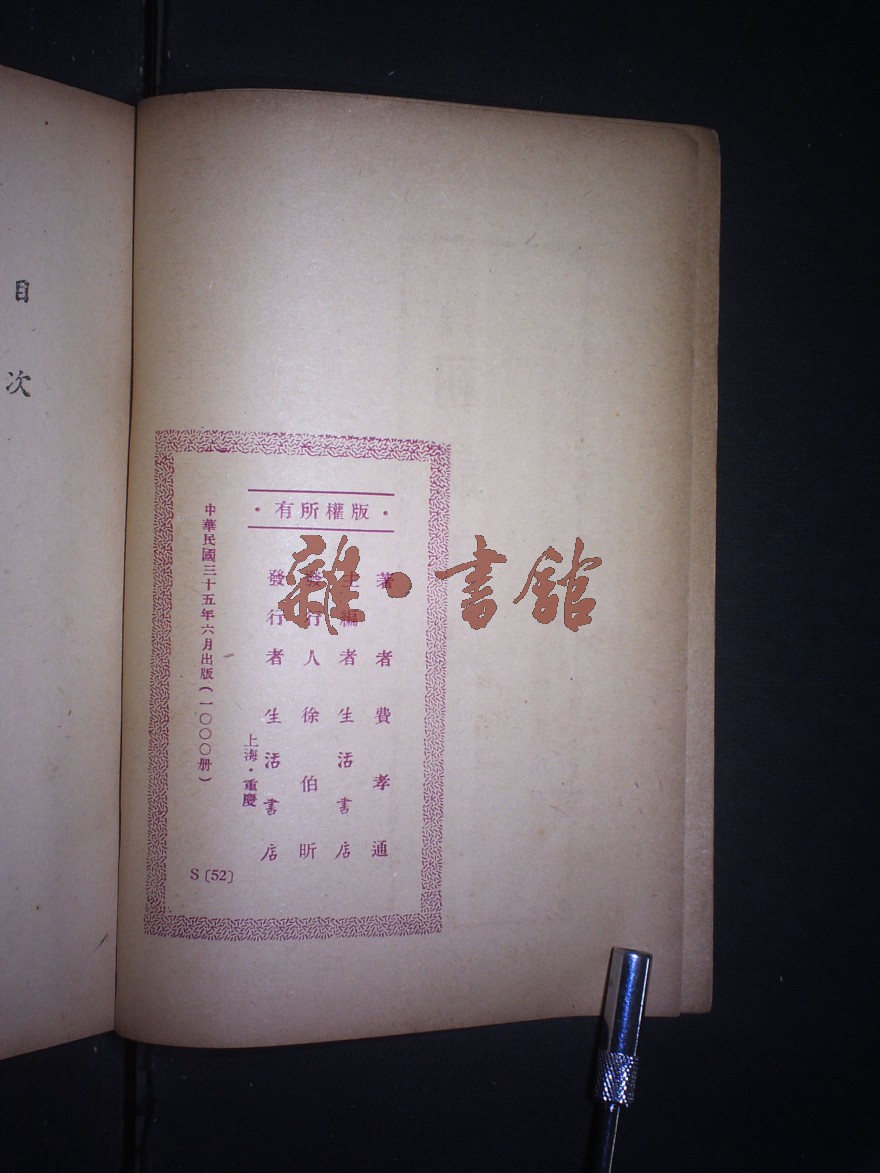 目次
·版權所有·
著者費孝通
主編者生活書店
發行人徐伯昕
發行者生活書店
上海·重慶
中華民國三十五年六月出版(一〇〇〇册)
S〔52〕
雜·書館